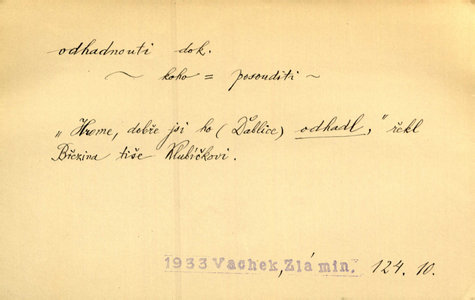 odhadnouti dok.
~ koho = posouditi ~
„Hrome, dobře jsi ho (Ďáblice) odhadl,“ řekl
Březina tiše Klubíčkovi.
1933 Vachek, Zlá min. 124. 10.